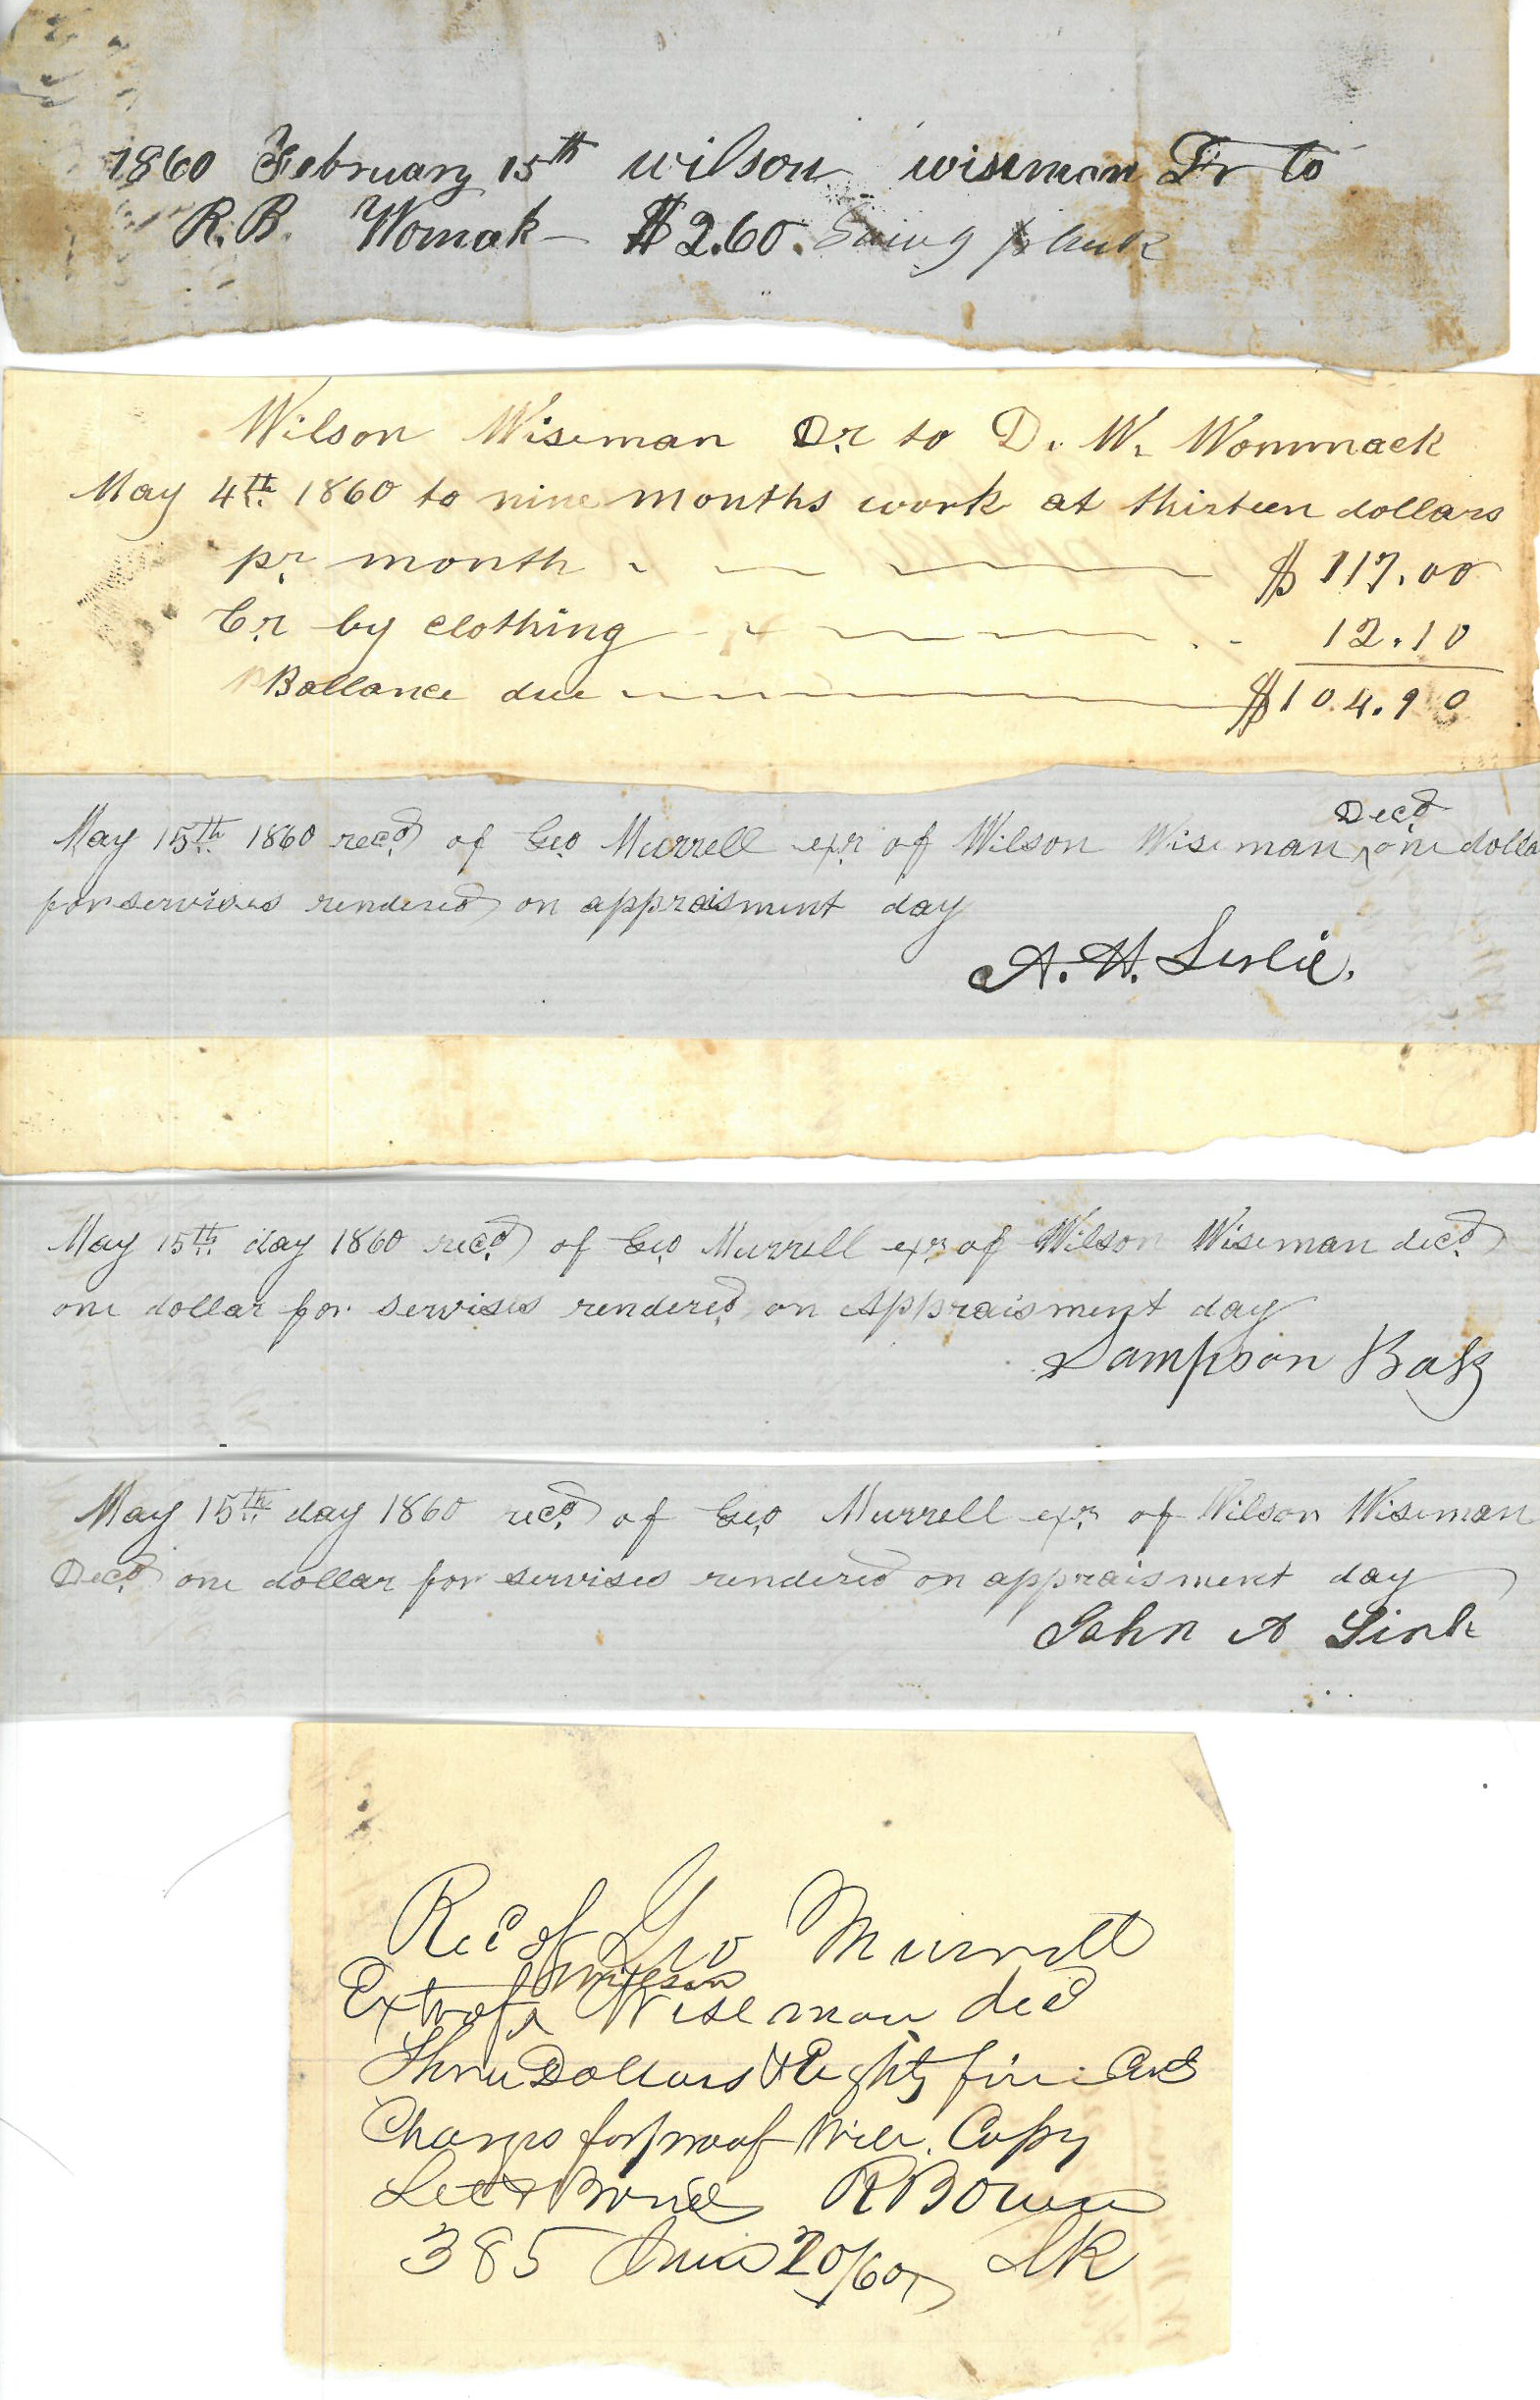 1860 February 15th wilson wiseman Dr to
R. B. Womak — $2.60. Sawing plank
Wilson Wiseman Dr to D. W. Wommack
May 4th 1860 to nine months work at thirteen dollars
pr month $ 117.00
Cr by clothing 12.10
Ballance due $104.90
Decd
May 15th 1860 recd of Geo Murrell exr of Wilson Wiseman ^ one dolla
for servises rendered on appraisment day
A. H. Leslie.
May 15th day 1860 recd of Geo Murrell exr of Wilson Wiseman decd
one dollar for servises rendered on Appraisment day
Sampson
May 15th day 1860 recd of Geo Murrell exr of Wilson Wiseman
Decd one dollar for servises rendered on appraisment day
John A Link
Recd of Geo Murrell
Wilson
Extr of ^ Wiseman decd
Three Dollars & Eighty five Cents
Charges for proof Will. Copy
Let & Bond R Bowen
385 20/60 Clk